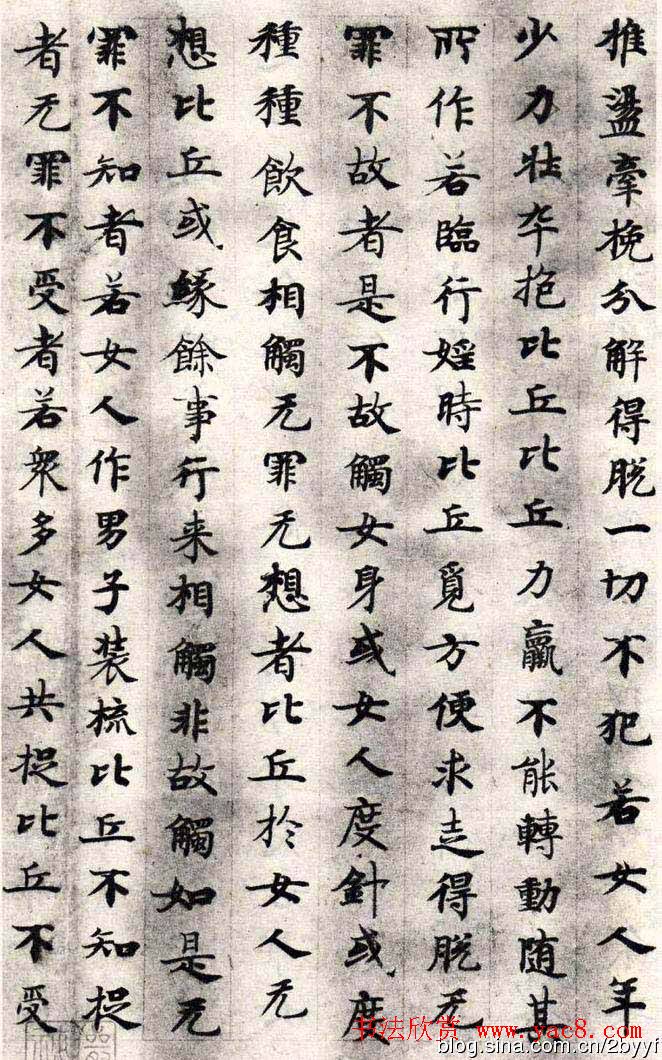 推盪牽挽分解得脱一切不犯若女人年
少力壮卒抱比丘比丘力羸不能轉動随其
所作若臨行婬時比丘覓方便求走得脱无
罪不故者是不故觸女身或女人度針或度
種種飲食相觸无罪无想者比丘於女人无
想比丘或緣餘事行来相觸非故觸如是无
罪不知者若女人作男子装梳比丘不知捉
者无罪不受者若衆多女人共捉比丘不受
书法欣赏 www.yac8.com
blog.sina.com.cn/2byyf